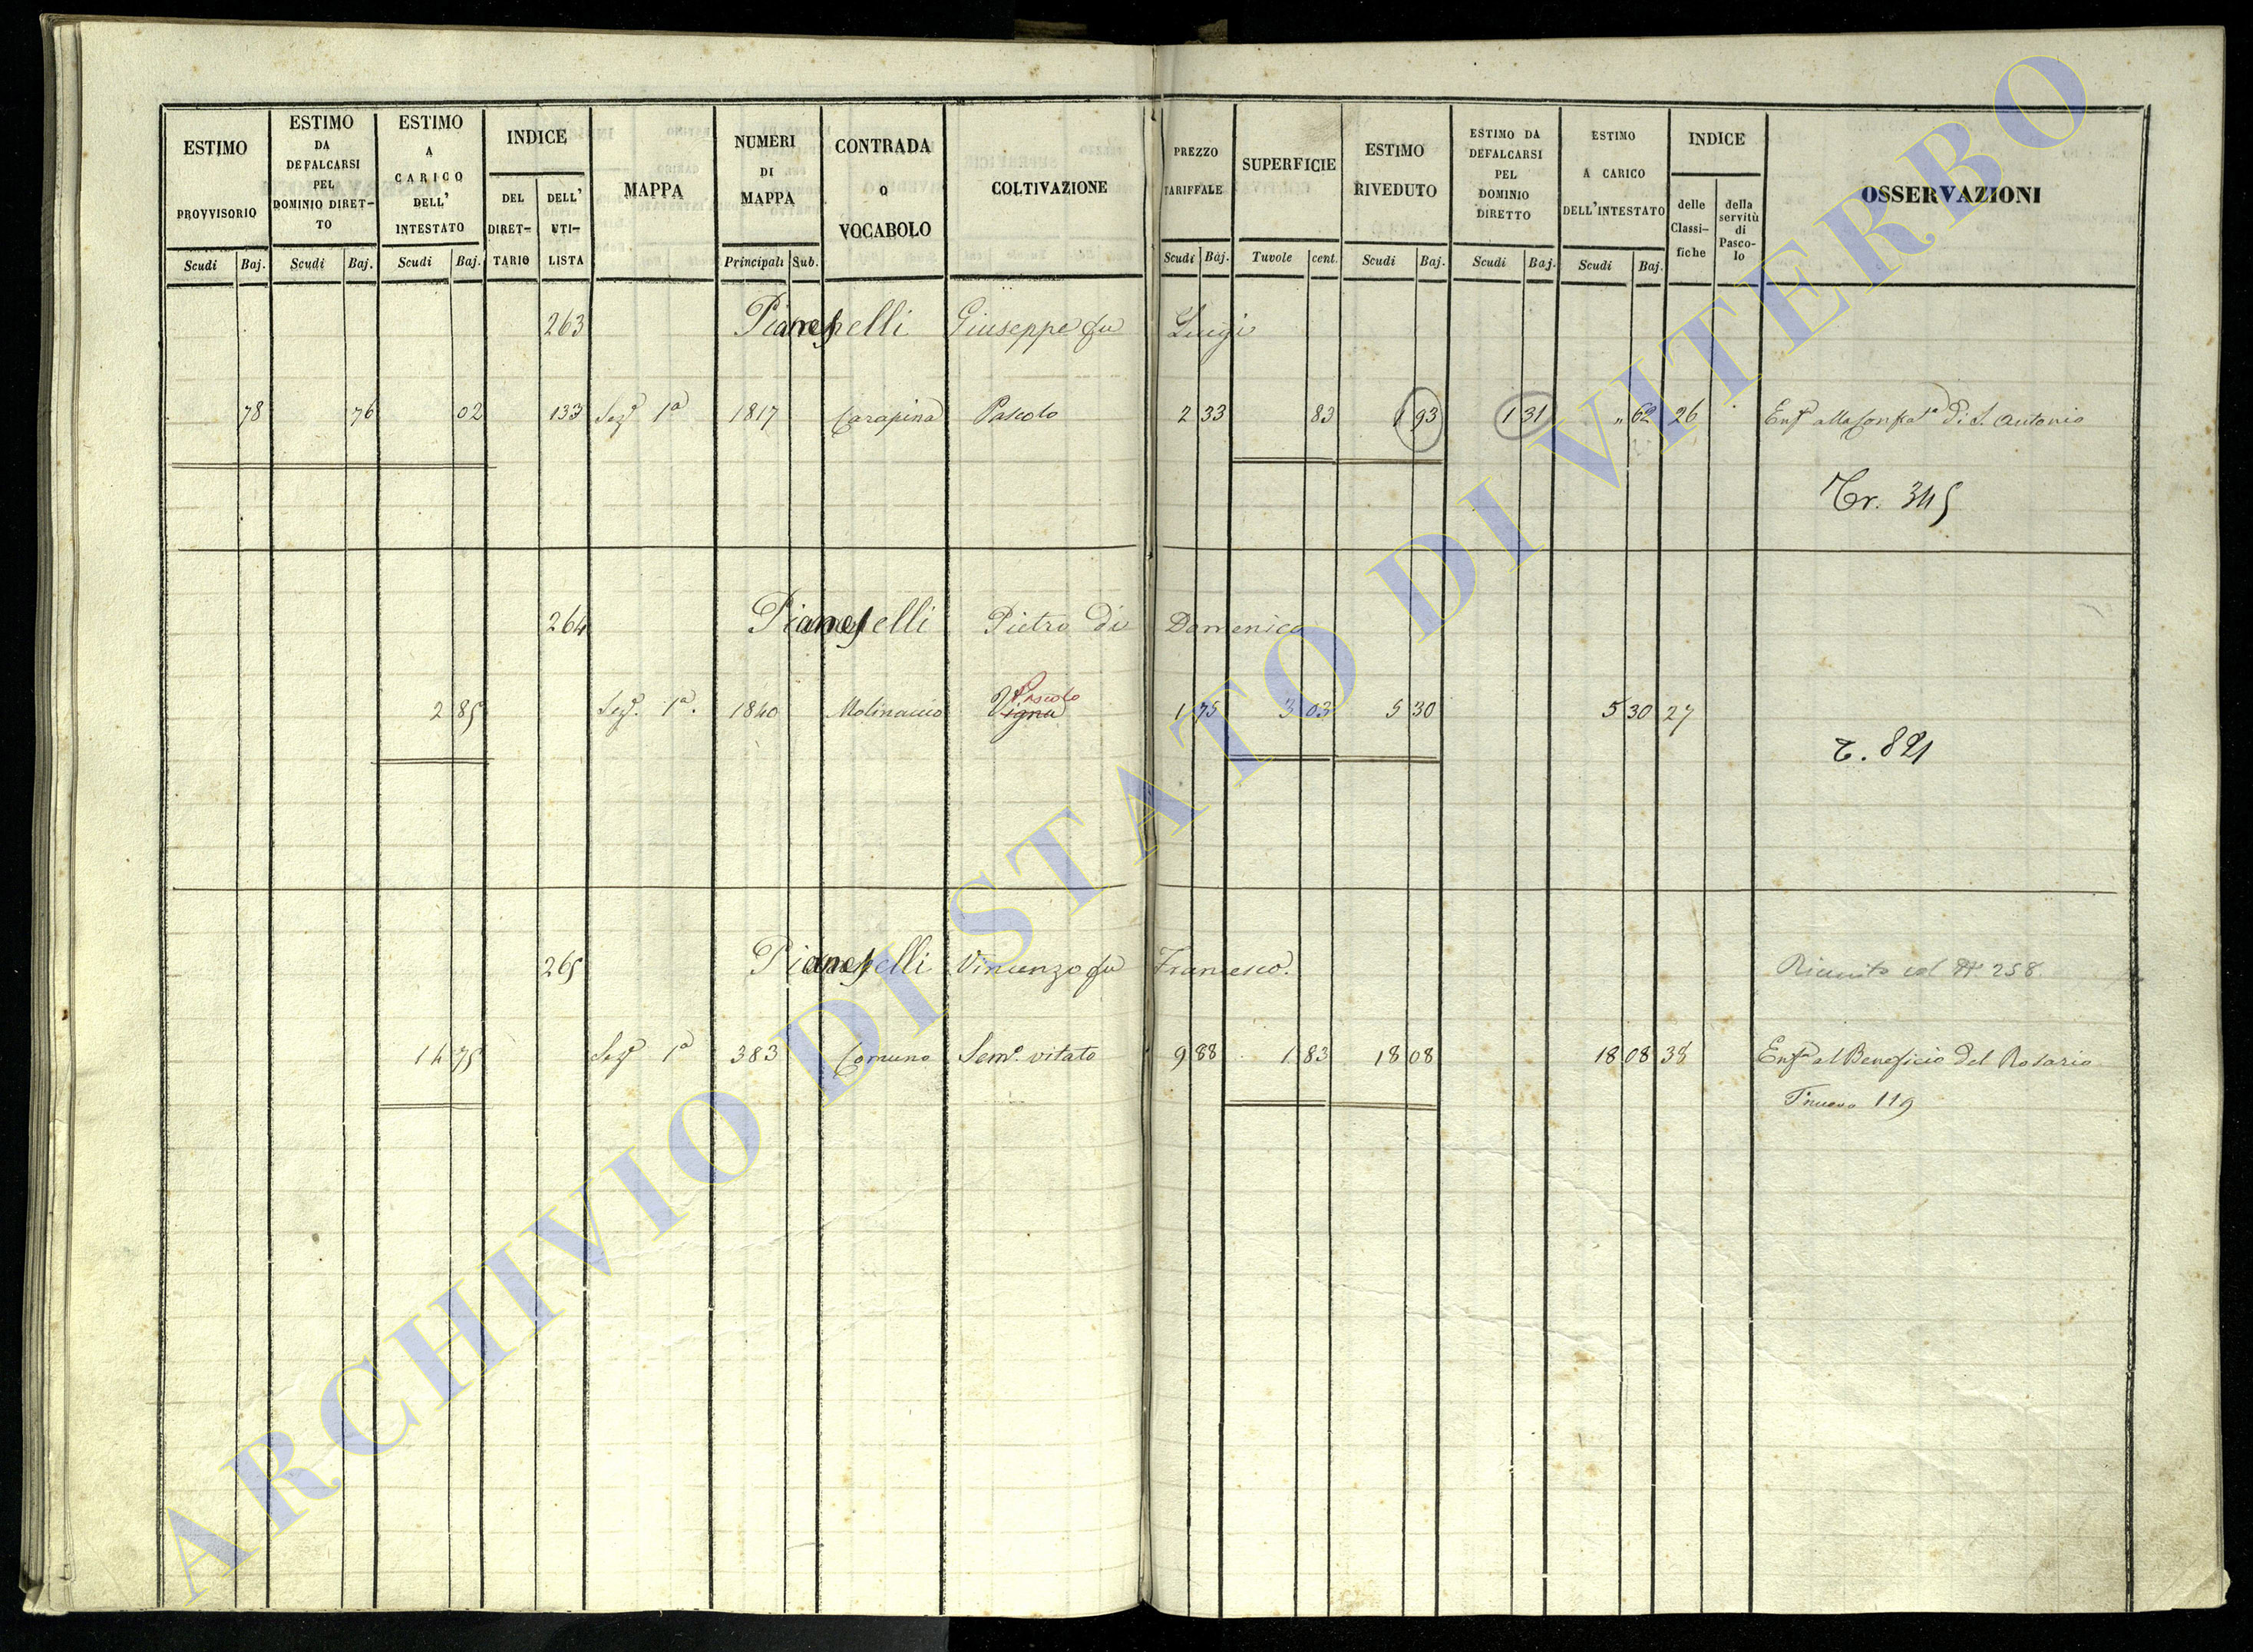 ESTIMO PROVVISORIO
ESTIMO DA DEFALCARSI PEL DOMINIO DIRET-TO
ESTIMO A CARICO DELL' INTESTATO
INDICE
DEL DIRET-TARIO
DELL' UTI-LISTA
MAPPA
NUMERI DI MAPPA
CONTRADA O VOCABOLO
COLTIVAZIONE
PREZZO TARIFFALE
SUPERFICIE
ESTIMO RIVEDUTO
ESTIMO DA DEFALCARSI PEL DOMINIO DIRETTO
ESTIMO A CARICO DELL'INTESTATO
INDICE
delle Classi-fiche
della servitù di Pasco-lo
OSSERVAZIONI
Scudi Baj. Scudi Baj. Scudi Baj. Principali Sub. Scudi Baj. Tavole cent. Scudi Baj. Scudi Baj. Scudi Baj.
263 Giuseppe fu Luigi
78 76 02 133 Sezᵉ 1ª 1817 Carapina Pascolo 2 33 83 1 93 1 31 " 62 26 di S. Antonio
Tr. 345
264 Pietro di Domenico
Pascolo
2 85 Sezᵉ. 1ª. 1840 Molinaccio Vigna 1 75 3 03 5 30 5 30 27
T. 821
265 Vincenzo fu Francesco. Riunito col Nº 258
14 75 Sezᵉ 1ª 383 Comuno Semº. vitato 9 88 1 83 18 08 18 08 38 Enfª al Beneficio del Rosario
119
ARCHIVIO DI STATO DI VITERBO